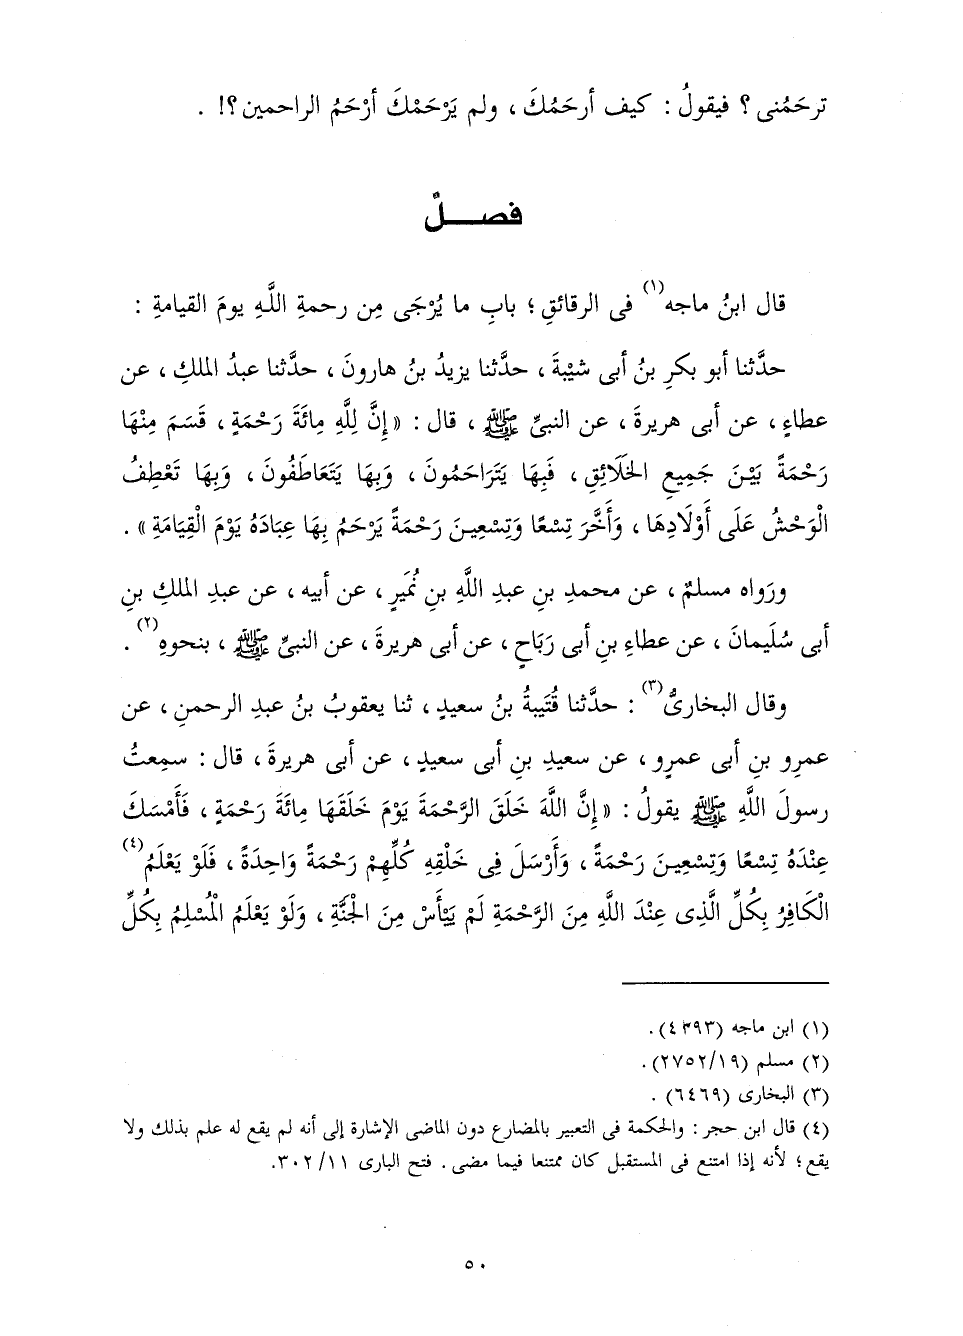 ترحَمُنى ؟ فيقولُ : كيف أرحَمُكَ ، ولم يَرْحَمْكَ أرْحَمُ الراحمين ؟! .
فصــــلٌ
قال ابنُ ماجه(١) فى الرقائقِ ؛ بابِ ما يُرْجَى مِن رحمةِ اللَّهِ يومَ القيامةِ :
حدَّثنا أبو بكرِ بنُ أبى شيْبةَ ، حدَّثنا يزيدُ بنُ هارونَ ، حدَّثنا عبدُ الملكِ ، عن
عطاءٍ ، عن أبى هريرةَ ، عن النبىِّ ﷺ ، قال : « إِنَّ لِلَّهِ مِائَةَ رَحْمَةٍ ، قَسَمَ مِنْهَا
رَحْمَةً بَيْنَ جَمِيعِ الخَلَائِقِ ، فَبِهَا يَتَرَاحَمُونَ ، وَبِهَا يَتَعَاطَفُونَ ، وَبِهَا تَعْطِفُ
الْوَحْشُ عَلَى أَوْلَادِهَا ، وَأَخَّرَ تِسْعًا وَتِسْعِينَ رَحْمَةً يَرْحَمُ بِهَا عِبَادَهُ يَوْمَ الْقِيَامَةِ » .
ورَواه مسلمٌ ، عن محمدِ بنِ عبدِ اللَّهِ بنِ نُمَيرٍ ، عن أبيه ، عن عبدِ الملكِ بنِ
أبى سُلَيمانَ ، عن عطاءِ بنِ أبى رَبَاحٍ ، عن أبى هريرةَ ، عن النبىِّ ﷺ ، بنحوِهِ(٢) .
وقال البخارىُّ(٣) : حدَّثنا قُتَيبةُ بنُ سعيدٍ ، ثنا يعقوبُ بنُ عبدِ الرحمنِ ، عن
عمرِو بنِ أبى عمرٍو ، عن سعيدِ بنِ أبى سعيدٍ ، عن أبى هريرةَ ، قال : سمِعتُ
رسولَ اللَّهِ ﷺ يقولُ : « إِنَّ اللَّهَ خَلَقَ الرَّحْمَةَ يَوْمَ خَلَقَهَا مِائَةَ رَحْمَةٍ ، فَأَمْسَكَ
عِنْدَهُ تِسْعًا وَتِسْعِينَ رَحْمَةً ، وَأَرْسَلَ فِى خَلْقِهِ كُلِّهِمْ رَحْمَةً وَاحِدَةً ، فَلَوْ يَعْلَمُ(٤)
الْكَافِرُ بِكُلِّ الَّذِى عِنْدَ اللَّهِ مِنَ الرَّحْمَةِ لَمْ يَيْأَسْ مِنَ الْجَنَّةِ ، وَلَوْ يَعْلَمُ الْمُسْلِمُ بِكُلِّ
(١) ابن ماجه (٤٢٩٣) .
(٢) مسلم (٢٧٥٢/١٩) .
(٣) البخارى (٦٤٦٩) .
(٤) قال ابن حجر : والحكمة فى التعبير بالمضارع دون الماضى الإشارة إلى أنه لم يقع له علم بذلك ولا
يقع ؛ لأنه إذا امتنع فى المستقبل كان ممتنعا فيما مضى . فتح البارى ٣٠٢/١١.
٥٠